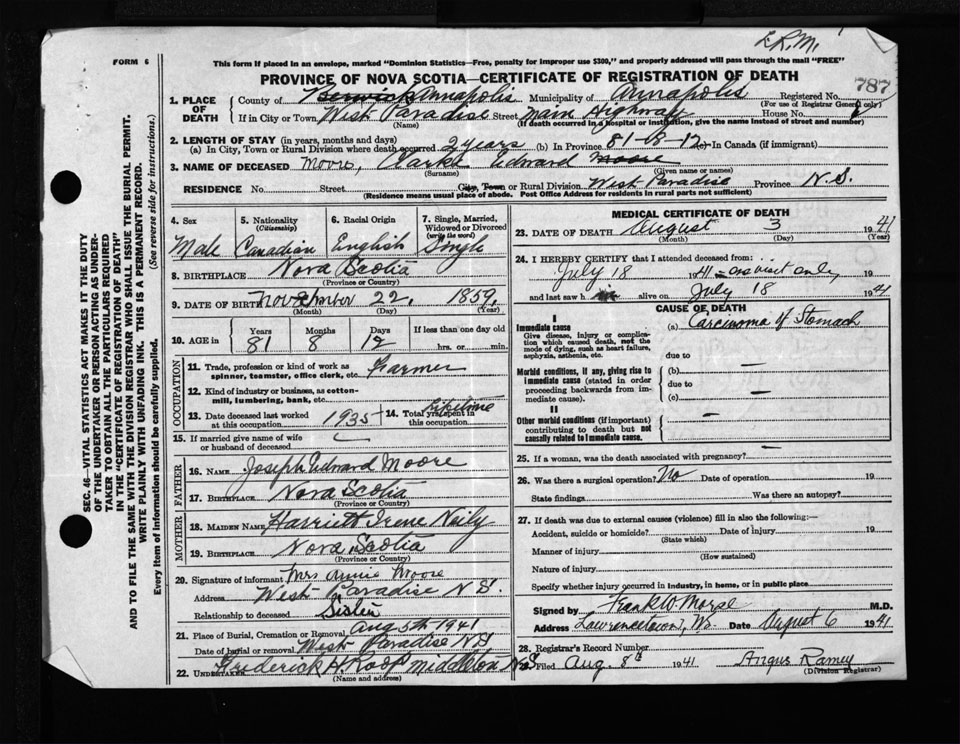 L.R.M.
FORM 6
This form if placed in an envelope, marked "Dominion Statistics—Free, penalty for improper use $300," and properly addressed will pass through the mail "FREE"
PROVINCE OF NOVA SCOTIA—CERTIFICATE OF REGISTRATION OF DEATH
787
1. PLACE OF DEATH
County of Berwick Annapolis Municipality of Annapolis Registered No.
(For use of Registrar General only)
If in City or Town West Paradise Street Main Highway House No.
(Name) (If death occurred in a hospital or institution, give the name instead of street and number)
2. LENGTH OF STAY (in years, months and days)
(a) In City, Town or Rural Division where death occurred 2 years (b) In Province 81-8-12 (c) In Canada (if immigrant)
3. NAME OF DECEASED Moore, Clarke Edward Moore
(Surname) (Given name or names)
RESIDENCE No. Street City, Town or Rural Division West Paradise Province N.S.
(Residence means usual place of abode. Post Office Address for residents in rural parts not sufficient)
4. Sex
Male
5. Nationality
(Citizenship)
Canadian
6. Racial Origin
English
7. Single, Married, Widowed or Divorced
(write the word)
Single
8. BIRTHPLACE Nova Scotia
(Province or Country)
9. DATE OF BIRTH November 22, 1859,
(Month) (Day) (Year)
10. AGE in
Years Months Days If less than one day old
81 8 12 hrs. or min.
OCCUPATION
11. Trade, profession or kind of work as spinner, teamster, office clerk, etc. Farmer
12. Kind of industry or business, as cotton-mill, lumbering, bank, etc.
13. Date deceased last worked at this occupation 1935
14. Total yrs. spent in this occupation lifetime
15. If married give name of wife or husband of deceased
FATHER
16. NAME Joseph Edward Moore
17. BIRTHPLACE Nova Scotia
(Province or Country)
MOTHER
18. MAIDEN NAME Harriett Irene Neily
19. BIRTHPLACE Nova Scotia
(Province or Country)
20. Signature of informant Mrs Annie Moore
Address West Paradise N.S.
Relationship to deceased Sister
21. Place of Burial, Cremation or Removal Aug 5th 1941
Date of burial or removal West Paradise N.S
22. UNDERTAKER Frederick H. Roop Middleton N.S
(Name and address)
MEDICAL CERTIFICATE OF DEATH
23. DATE OF DEATH August 3 1941
(Month) (Day) (Year)
24. I HEREBY CERTIFY that I attended deceased from:
July 18 1941 one visit only, 19
and last saw h im alive on July 18 1941
CAUSE OF DEATH
I
Immediate cause
Give disease, injury or complication which caused death, not the mode of dying, such as heart failure, asphyxia, asthenia, etc.
(a) Carcinoma of Stomach
due to
Morbid conditions, if any, giving rise to immediate cause (stated in order proceeding backwards from immediate cause).
(b) —
due to
(c) —
II
Other morbid conditions (if important) contributing to death but not causally related to immediate cause.
—
25. If a woman, was the death associated with pregnancy? —
26. Was there a surgical operation? No Date of operation 19
State findings Was there an autopsy?
27. If death was due to external causes (violence) fill in also the following:—
Accident, suicide or homicide? Date of injury 19
(State which)
Manner of injury
(How sustained)
Nature of injury
Specify whether injury occurred in industry, in home, or in public place
Signed by Frank W. Morse M.D.
Address Lawrencetown, NS. Date August 6 1941
28. Registrar's Record Number
29. Filed Aug. 8th 1941 Angus Ramey
(Division Registrar)
SEC. 46—VITAL STATISTICS ACT MAKES IT THE DUTY
OF THE UNDERTAKER OR PERSON ACTING AS UNDER-
TAKER TO OBTAIN ALL THE PARTICULARS REQUIRED
IN THE "CERTIFICATE OF REGISTRATION OF DEATH"
AND TO FILE THE SAME WITH THE DIVISION REGISTRAR WHO SHALL ISSUE THE BURIAL PERMIT.
WRITE PLAINLY WITH UNFADING INK. THIS IS A PERMANENT RECORD.
Every item of Information should be carefully supplied. (See reverse side for instructions.)